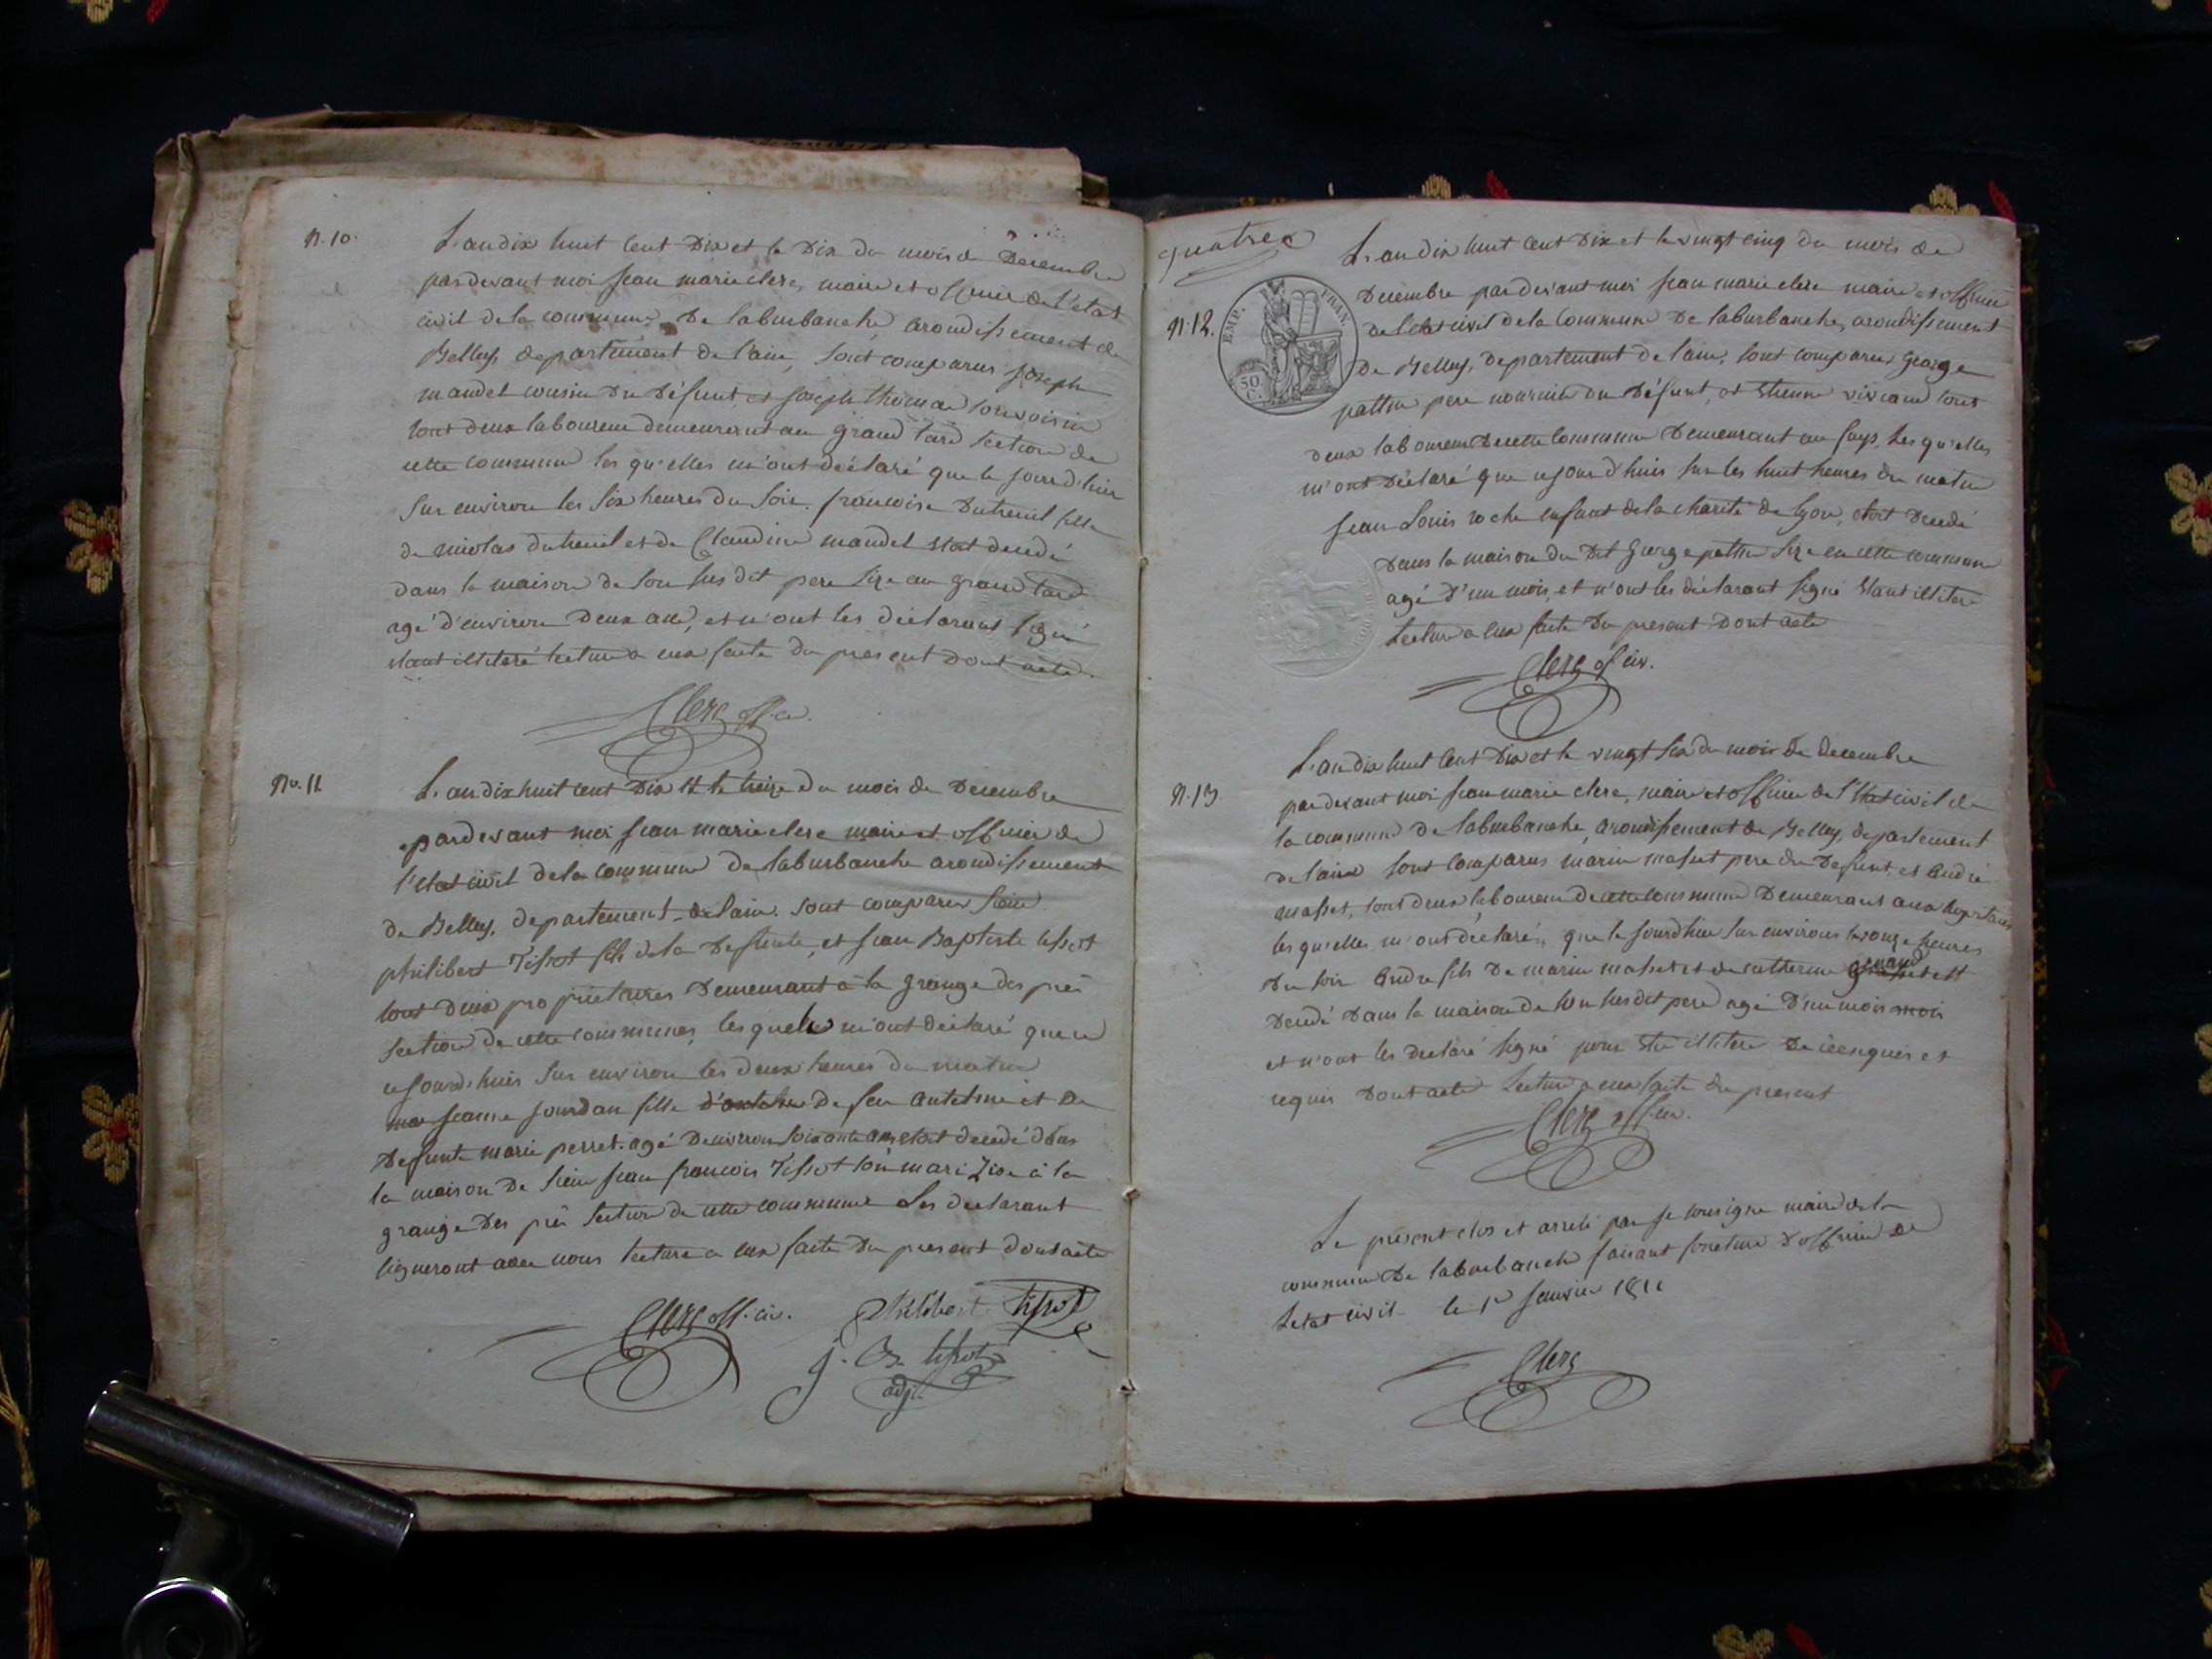 n. 10.
L'an dix huit cent Dix et le Dix du mois de Decembre
pardevant moi jean marie clerc, maire et officier de l'etat
civil de la commune De laburbanche arondissement de
Belley, departement de l'ain, sont comparus joseph
mandet cousin Du Défunt, et joseph thomas son voisin
tous deux laboureur demeurant au grand tard section de
cette commune les qu'elles m'ont déclaré que le jourd'hier
sur environ les six heures du soir. francoise Dutreuil fille
de nicolas dutreuil et de Claudine mandet etoit decedé
dans la maison de son susdit pere size au grand tard
agé d'environ Deux ans, et n'ont les déclarant signé
etant illiteré lecture a eux faite du present dont acte.
Clerc off. ci.
No. 11
L'an dix huit cent Dix et le treize du mois de Decembre
pardevant moi jean marie clerc maire et officier de
l'etat civil de la commune de laburbanche arondissement
de Belley, departement de l'ain. sont comparus sieur
philibert Tissot fils de la Defunte, et jean Baptiste tissot
tout deux propriétaires Demeurant à la grange des prés
section de cette commune, lesquels m'ont déclaré que ce
cejourd'huis sur environ les deux heures du matin
jeanne jourdan fille De feu antelme et De
Defunte marie perret. agé Denviron soixante ans etoit decedé dans
la maison De sieur jean francois Tissot son mari size à la
grange Des prés section de cette commune Les declarant
signeront avec nous lecture a eux faite Du present dont acte
Clerc off. civ. Philibert Tissot
j. B. tissot
adj.
quatre
L'an dix huit cent Dix et le vingt cinq du mois de
n. 12.
EMP. FRAN.
50. C.
Decembre pardevant moi jean marie clerc maire et officier
de l'etat civil de la Commune De laburbanche, arondissement
de Belley, departement de l'ain, sont comparus george
pere nouricier du Défunt, et etienne tous
deux laboureur De cette Commune Demeurant au fays, les qu'elles
m'ont Déclaré que cejourd'huis sur les huit heures du matin
jean Louis roche enfant de la charité de lyon, etoit Decedé
Dans la maison du Dit George size en cette commune
agé D'un mois, et n'ont les déclarant signé etant illiteré
Lecture a eux faite Du present Dont acte
Clerc of civ.
n. 13
L'an dix huit cent Dix et le vingt six du mois De Decembre
pardevant moi jean marie clerc, maire et officier de l'etat civil de
la commune De laburbanche, arondissement de Belley, departement
de l'ain sont comparus marin masset pere du Defunt, et andré
masset, tous deux laboureur de cette commune Demeurant aux
les qu'elles m'ont déclarés que le jourdhier sur environs les onze heures
Du soir andre fils De marin masset et de catherine est
Decedé Dans la maison de son susdit pere agé D'un mois mois
et n'ont les declaré signé pour etre illiteré De ce enquis et
requis Dont acte Lecture a eux faite du present
Clerc off. civ.
Le present clos et areté par je sousigne maire de la
commune De laburbanche faisant fonction D'officier De
Letat civil le 1er janvier 1811
Clerc